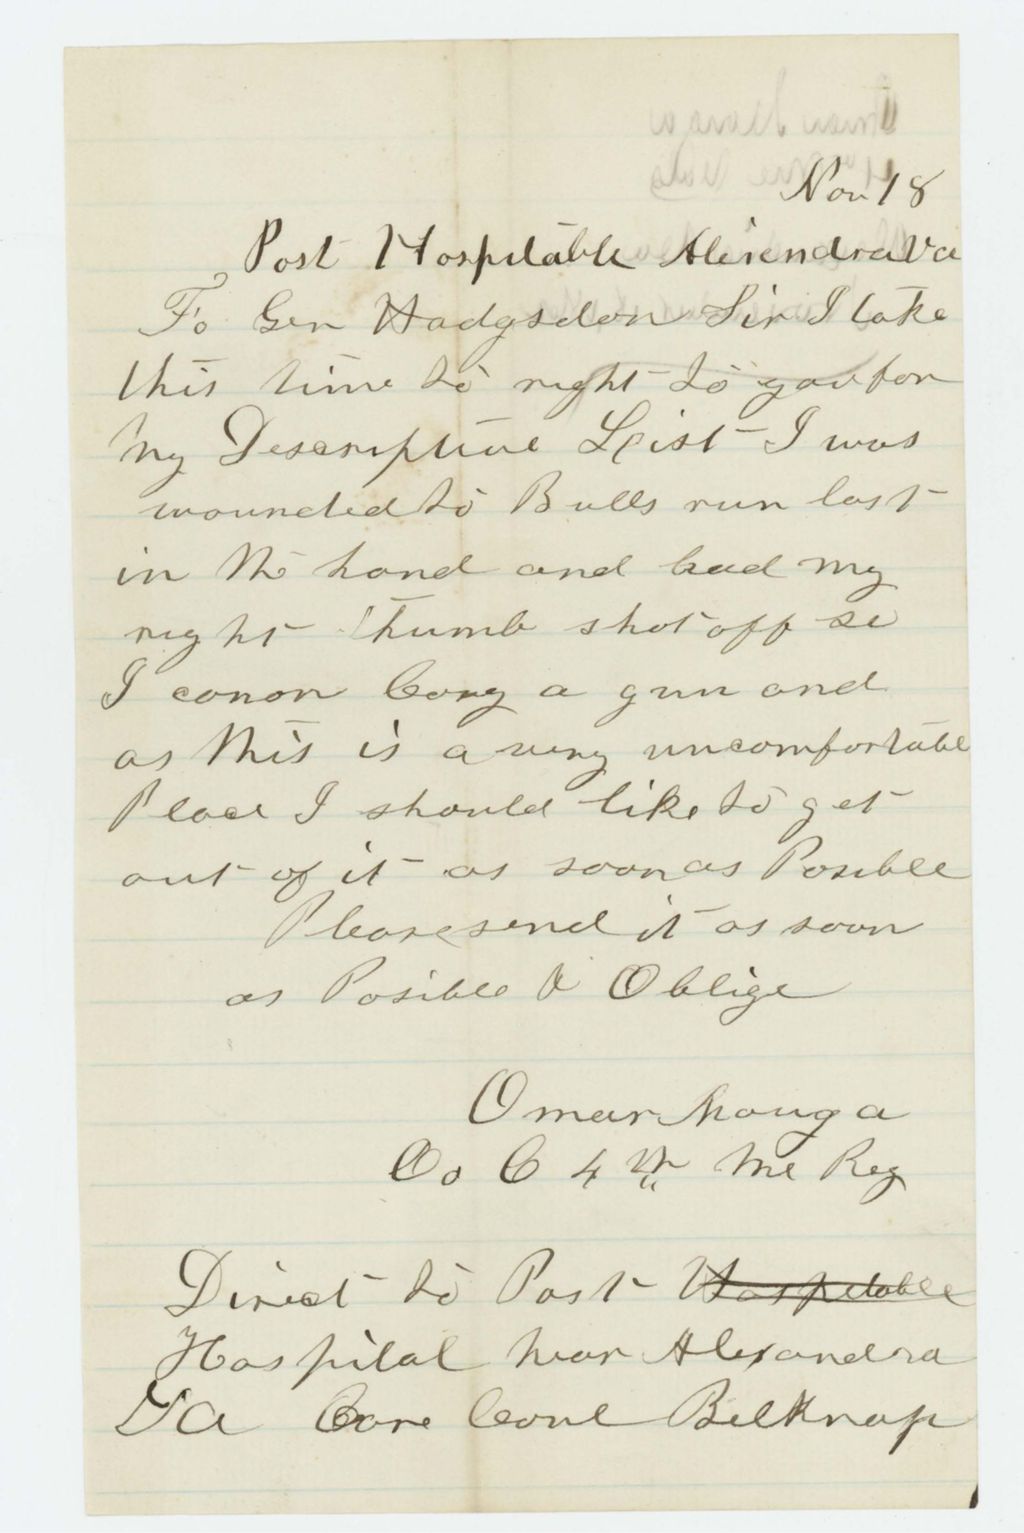 Nov 18
Post Hospitable Alexendra Va
To Gen Hadgsdon Sir I take
this time to right to you for
my Descriptive List I was
wounded to Bulls run last
in the hand and had my
right thumb shot off so
I canon Cary a gun and
as this is a very uncomfortable
Place I should like to get
out of it as soon as Posible
Please send it as soon
as Posible & Oblige
Omar
Co C 4th Me Reg
Direct to Post Hospitable
Hospital near Alexandra
VA Care Conl Belknap